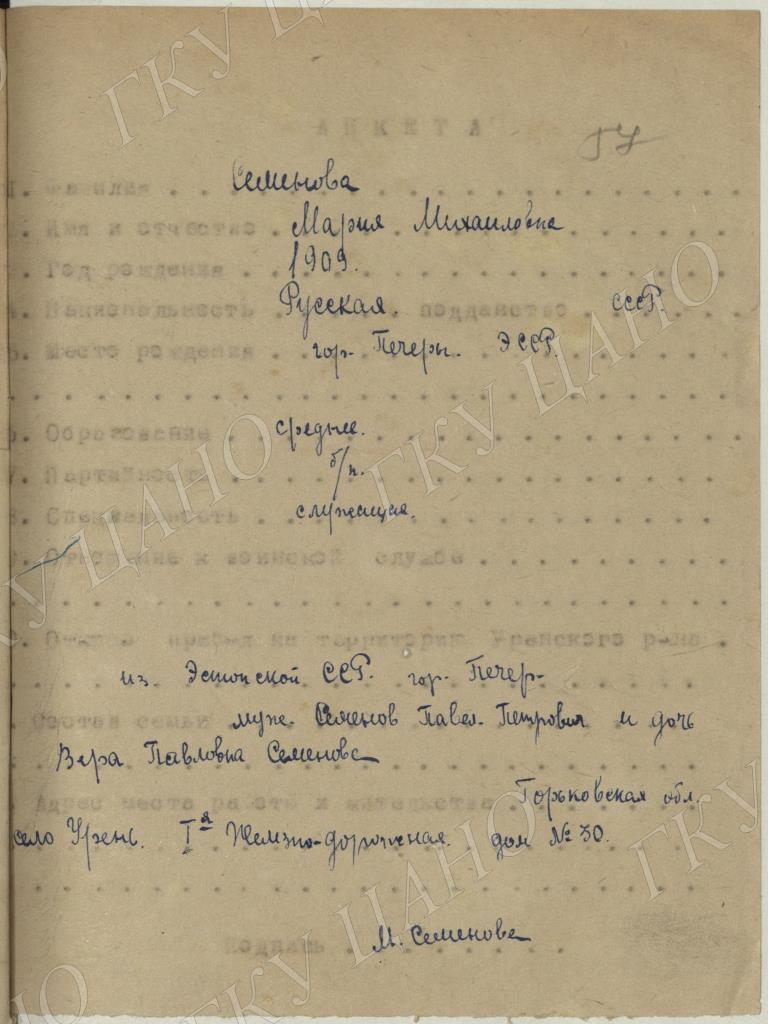 АНКЕТА
1. Фамилия . . Семенова
Имя и отчество . Мария Михаиловна
Год рождения . . 1909.
Национальность Русская. подданство . СССР.
5. Место рождения . . гор. Печеры. ЭССР.
6. Образование . . среднее.
7. Партийность . . б/п.
8. Специальность . служащая.
9. Отношение к воинской службе . . . . . .
Откуда прибыл на территорию Уренского р-на .
из Эстонской ССР. гор. Печер-
Состав семьи муж. Семенов Павел. Петрович и дочь
Вера Павловна Семенова
Адрес места работы и жительства . Горьковская обл.
село Урень. I я Железно-дорожная. дом № 30.
Подпись . М. Семенова
ГКУ ЦАНО
ГКУ ЦАНО
ГКУ ЦАНО
ГКУ ЦАНО
ГКУ ЦАНО